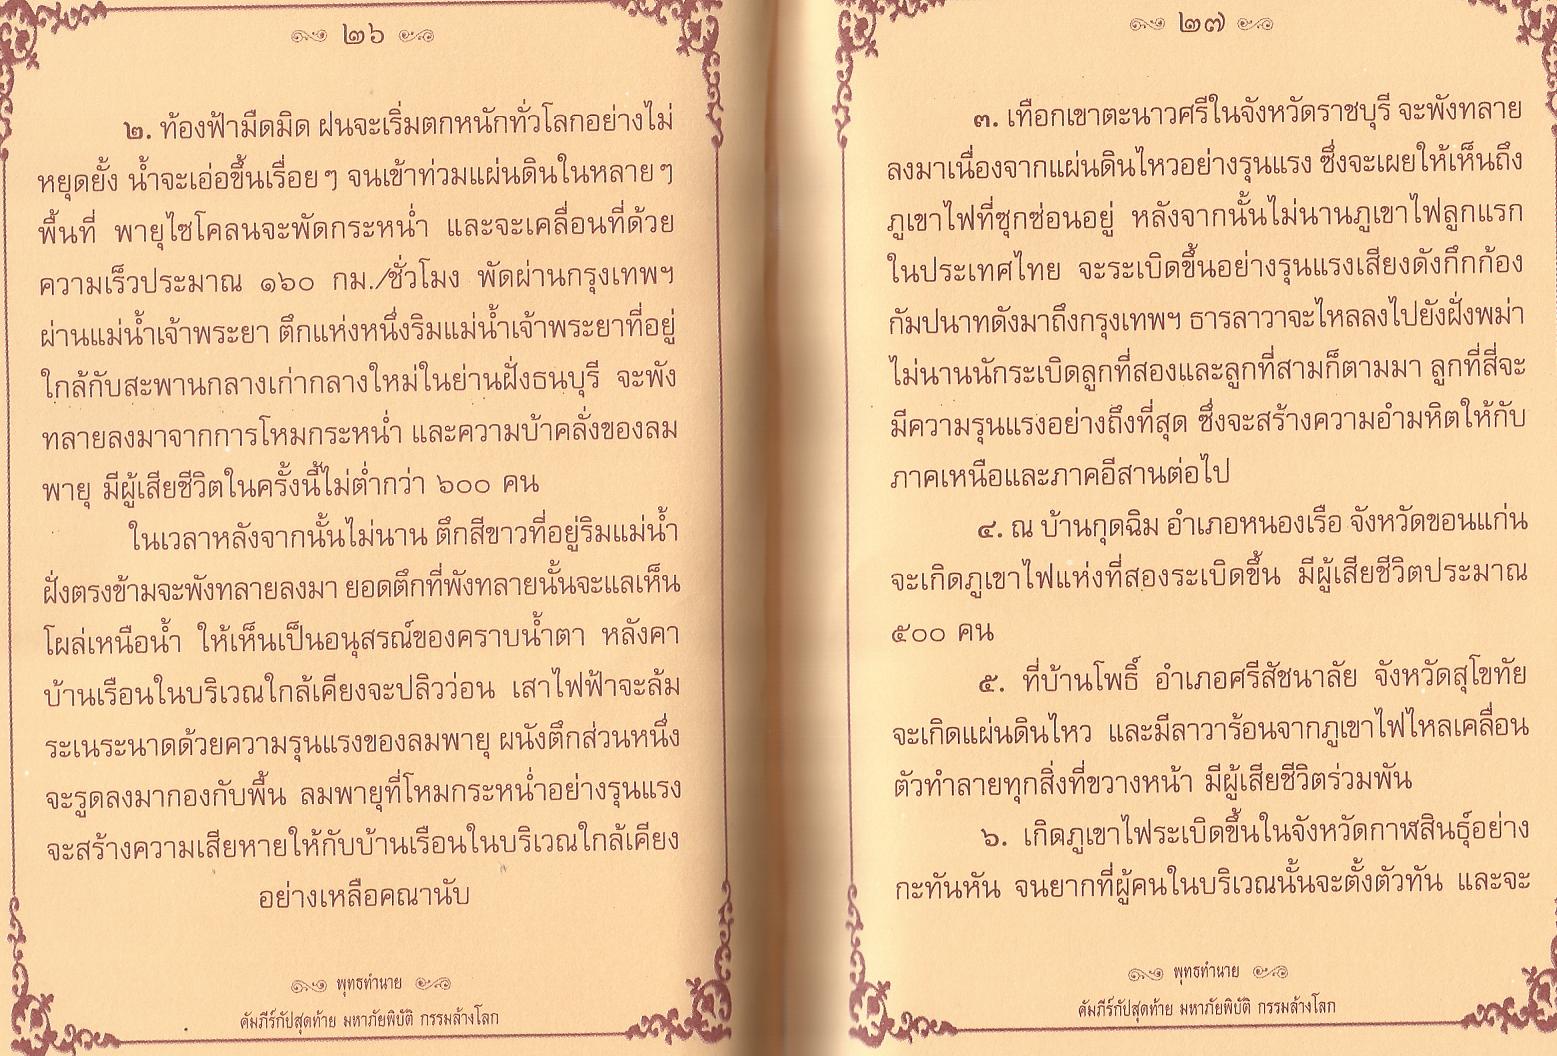 ๒๖
๒. ท้องฟ้ามืดมิด ฝนจะเริ่มตกหนักทั่วโลกอย่างไม่
หยุดยั้ง น้ำจะเอ่อขึ้นเรื่อยๆ จนเข้าท่วมแผ่นดินในหลายๆ
พื้นที่ พายุไซโคลนจะพัดกระหน่ำ และจะเคลื่อนที่ด้วย
ความเร็วประมาณ ๑๖๐ กม./ชั่วโมง พัดผ่านกรุงเทพฯ
ผ่านแม่น้ำเจ้าพระยา ตึกแห่งหนึ่งริมแม่น้ำเจ้าพระยาที่อยู่
ใกล้กับสะพานกลางเก่ากลางใหม่ในย่านฝั่งธนบุรี จะพัง
ทลายลงมาจากการโหมกระหน่ำ และความบ้าคลั่งของลม
พายุ มีผู้เสียชีวิตในครั้งนี้ไม่ต่ำกว่า ๖๐๐ คน
ในเวลาหลังจากนั้นไม่นาน ตึกสีขาวที่อยู่ริมแม่น้ำ
ฝั่งตรงข้ามจะพังทลายลงมา ยอดตึกที่พังทลายนั้นจะแลเห็น
โผล่เหนือน้ำ ให้เห็นเป็นอนุสรณ์ของคราบน้ำตา หลังคา
บ้านเรือนในบริเวณใกล้เคียงจะปลิวว่อน เสาไฟฟ้าจะล้ม
ระเนระนาดด้วยความรุนแรงของลมพายุ ผนังตึกส่วนหนึ่ง
จะรูดลงมากองกับพื้น ลมพายุที่โหมกระหน่ำอย่างรุนแรง
จะสร้างความเสียหายให้กับบ้านเรือนในบริเวณใกล้เคียง
อย่างเหลือคณานับ
พุทธทำนาย
คัมภีร์กัปสุดท้าย มหาภัยพิบัติ กรรมล้างโลก
๒๗
๓. เทือกเขาตะนาวศรีในจังหวัดราชบุรี จะพังทลาย
ลงมาเนื่องจากแผ่นดินไหวอย่างรุนแรง ซึ่งจะเผยให้เห็นถึง
ภูเขาไฟที่ซุกซ่อนอยู่ หลังจากนั้นไม่นานภูเขาไฟลูกแรก
ในประเทศไทย จะระเบิดขึ้นอย่างรุนแรงเสียงดังกึกก้อง
กัมปนาทดังมาถึงกรุงเทพฯ ธารลาวาจะไหลลงไปยังฝั่งพม่า
ไม่นานนักระเบิดลูกที่สองและลูกที่สามก็ตามมา ลูกที่สี่จะ
มีความรุนแรงอย่างถึงที่สุด ซึ่งจะสร้างความอำมหิตให้กับ
ภาคเหนือและภาคอีสานต่อไป
๔. ณ บ้านกุดฉิม อำเภอหนองเรือ จังหวัดขอนแก่น
จะเกิดภูเขาไฟแห่งที่สองระเบิดขึ้น มีผู้เสียชีวิตประมาณ
๕๐๐ คน
๕. ที่บ้านโพธิ์ อำเภอศรีสัชนาลัย จังหวัดสุโขทัย
จะเกิดแผ่นดินไหว และมีลาวาร้อนจากภูเขาไฟไหลเคลื่อน
ตัวทำลายทุกสิ่งที่ขวางหน้า มีผู้เสียชีวิตร่วมพัน
๖. เกิดภูเขาไฟระเบิดขึ้นในจังหวัดกาฬสินธุ์อย่าง
กะทันหัน จนยากที่ผู้คนในบริเวณนั้นจะตั้งตัวทัน และจะ
พุทธทำนาย
คัมภีร์กัปสุดท้าย มหาภัยพิบัติ กรรมล้างโลก